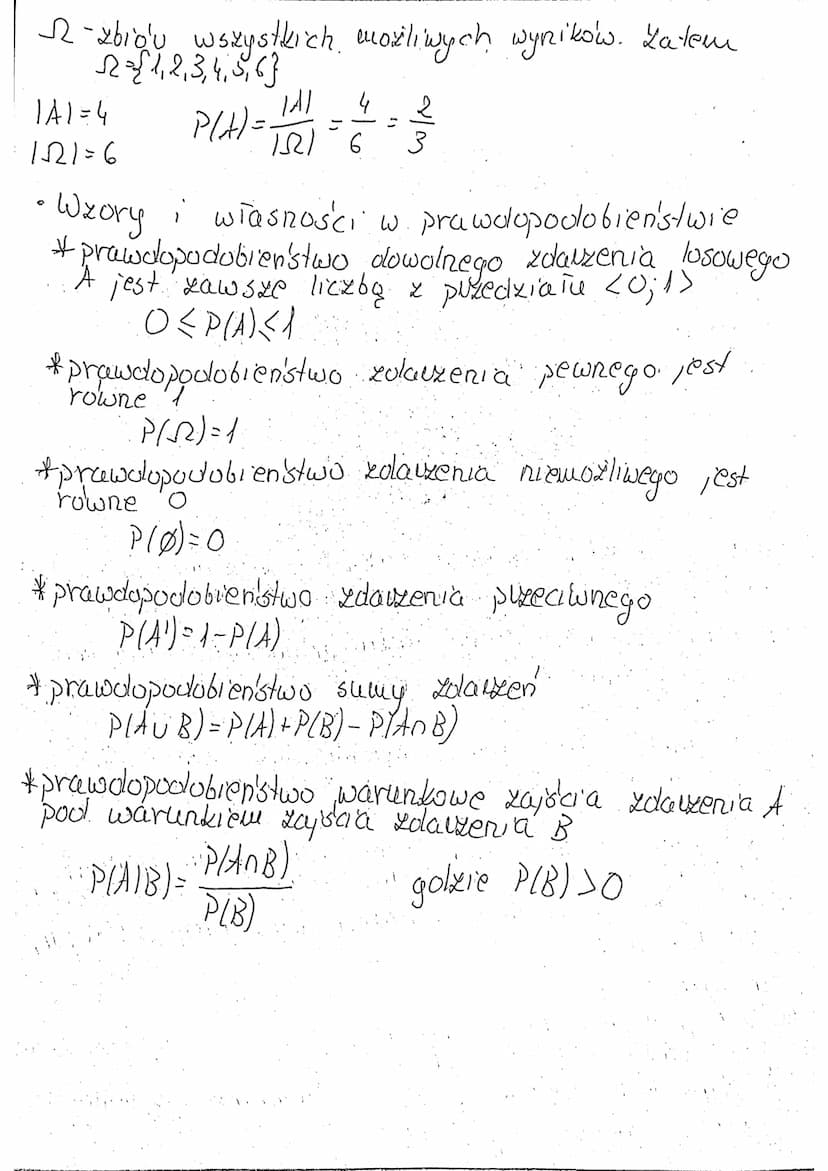 Ω - zbiór wszystkich możliwych wyników. Zatem
Ω={1,2,3,4,5,6}
|A|=4
P(A)=|A|/|Ω| = 4/6 = 2/3
|Ω|=6
• Wzory i własności w prawdopodobieństwie
* prawdopodobieństwo dowolnego zdarzenia losowego
A jest zawsze liczbą z przedziału <0;1>
0≤P(A)≤1
* prawdopodobieństwo zdarzenia pewnego jest
równe 1
P(Ω)=1
* prawdopodobieństwo zdarzenia niemożliwego jest
równe 0
P(∅)=0
* prawdopodobieństwo zdarzenia przeciwnego
P(A')=1-P(A)
* prawdopodobieństwo sumy zdarzeń
P(A∪B)=P(A)+P(B)-P(A∩B)
* prawdopodobieństwo warunkowe zajścia zdarzenia A
pod warunkiem zajścia zdarzenia B
P(A|B)=P(A∩B)/P(B) gdzie P(B)>0